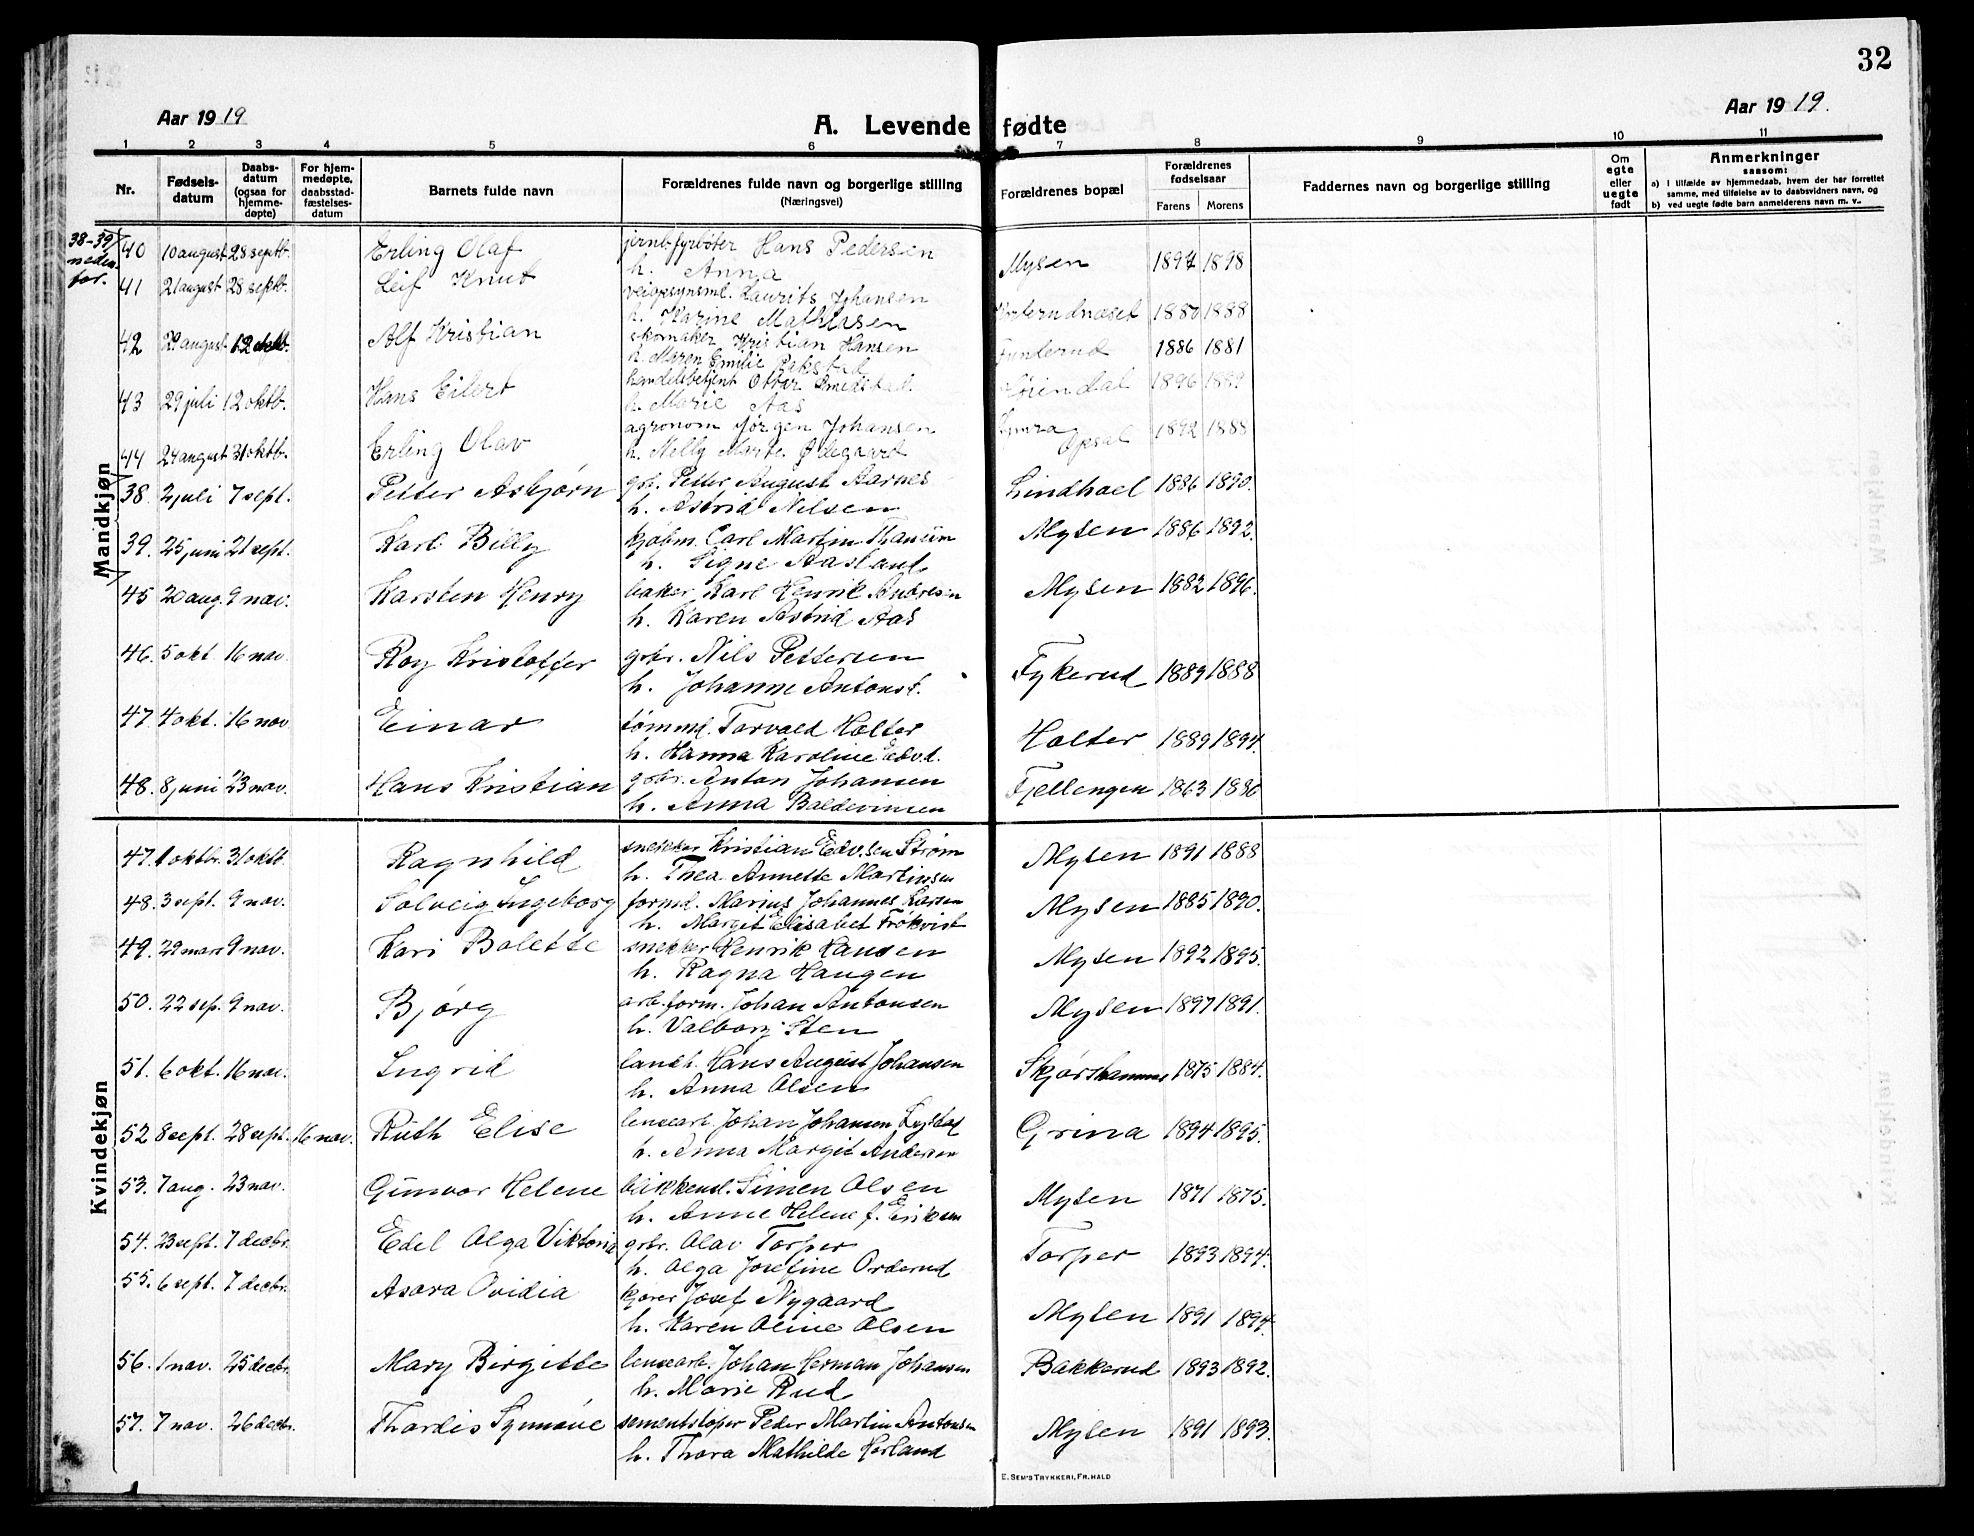 32
Aar 1919
A. Levende fødte
Aar 1919.
1 2 3 4 5 6 7 8 9 10 11
Nr.
Fødsels-
datum
Daabs-
datum
(ogsaa for
hjemme-
døpte)
For hjem-
medøpte,
daabsstad-
fæstelses-
datum
Barnets fulde navn
Forældrenes fulde navn og borgerlige stilling
(Næringsvei)
Forældrenes bopæl
Forældrenes
fødselsaar
Farens Morens
Faddernes navn og borgerlige stilling
Om
egte
eller
uegte
født
Anmerkninger
saasom:
a) i tilfælde av hjemmedaab, hvem der har forrettet
samme, med tilføielse av to daabsvidners navn, og
b) ved uegte fødte barn anmelderens navn m. v.
Mandkjøn
38-39
neden-
for.
40 10 august 28 septb. Erling Olaf jernb.fyrbøter Hans Pedersen Mysen 1897 1898
h. Anna
41 21 august 28 septb. Leif Knut Laurits Johansen 1880 1888
h. Karine Mathiasen
42 august 12 Alf Kristian skomaker Kristian Hansen 1886 1881
h. Maren Emilie
43 29 juli 12 oktb. Hans Eilert handelsbetjent Ottar 1896
h. Marie Aas
44 24 august 31 oktb. Erling Olav agronom Jørgen Johansen Opsal 1892 1888
h. Nelly Marte Ødegaard
38. 2 juli 7 sept. Petter Asbjørn gbr. Petter August Aarnes 1886 1890.
h. Astrid Nilsen
39. 25 juni 21 sept. Karl Billy kjøbm. Carl Martin Mysen 1886 1892.
h. Signe Aasland
45 20 aug. 9 nav. Karsten Henry baker Karl Henrik Andresen Mysen 1882 1896.
h. Karen Astrid Aas
46. 5 okt. 16 nav. Roy Kristoffer grbr. Nils Pettersen Fykerud 1889 1888
h. Johanne Antonst.
47. 4 okt. 16 nov Einar tømmd. Torvald Holter Holter 1889 1894.
h. Hanna Karoline Edv.d.
48. 8 juni 23 nav. Hans Kristian grbr. Anton Johansen Fjellengen 1863 1880
h. Anna Baldevinsen
Kvindekjøn
47. 1 oktbr. 31 oktb. Ragnhild snekker Kristian Edv.sen Strøm Mysen 1891 1888
h. Thea Annette Martinsen
48. 3 sept. 9 nav. Solveig Ingeborg formd. Marius Johannes Larsen Mysen 1885 1890.
h. Margit Elisabet Frøkvist
49. 29 mars 9 nav. Kari Bolette snekker Henrik Hansen Mysen 1892 1895.
h. Ragna Haugen
50. 22 sep. 9 nav. Bjørg arb.form. Johan Antonsen Mysen 1897 1891.
h. Valborg Sten
51. 6 okt. 16 nav. Ingrid landh. Hans August Johansen 1875 1884.
h. Anna Olsen
52 8 sept. 28 sept. 16 nav. Ruth Elise leusearb. Johan Johansen Grina 1894 1895.
h. Anna Margit Andersen
53. 7 aug. 23 nav. Gunvor Helene blikkensl. Simen Olsen Mysen 1871 1875.
h. Anne Helene f. Eriksen
54. 23 sept. 7 decbr. Edel Olga Viktoria grbr. Olav Torper Torper 1893 1894.
h. Olga Josefine Orderud
55. 6 sept. 7 decbr. Asora Ovidia kjører Josef Nygaard Mysen 1891 1894.
h. Karen Oline Olsen
56. 1 nav. 25 decbr. Mary Birgitte leusearb. Johan Herman Johansen Bakkerud 1893 1892.
h. Marie Rud
57. 7 nav. 26 decbr. Thordis Synnøve sementstøper Peder Martin Antonsen Mysen 1891 1893.
h. Thora Mathilde Horland
E. SEM'S TRYKKERI, FR.HALD